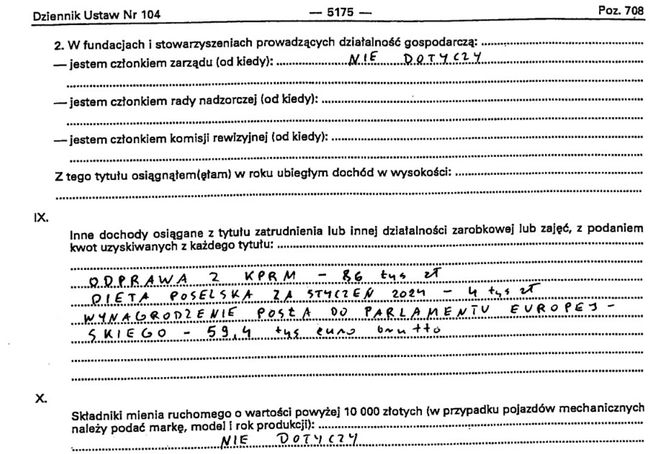 Dziennik Ustaw Nr 104 — 5175 — Poz. 708
2. W fundacjach i stowarzyszeniach prowadzących działalność gospodarczą:
— jestem członkiem zarządu (od kiedy): NIE DOTYCZY
— jestem członkiem rady nadzorczej (od kiedy):
— jestem członkiem komisji rewizyjnej (od kiedy):
Z tego tytułu osiągnąłem(ęłam) w roku ubiegłym dochód w wysokości:
IX.
Inne dochody osiągane z tytułu zatrudnienia lub innej działalności zarobkowej lub zajęć, z podaniem
kwot uzyskiwanych z każdego tytułu:
ODPRAWA Z KPRM – 86 tys zł
DIETA POSELSKA ZA STYCZEŃ 2024 – 4 tys zł
WYNAGRODZENIE POSŁA DO PARLAMENTU EUROPEJ-
SKIEGO – 59,4 tys euro brutto
X.
Składniki mienia ruchomego o wartości powyżej 10 000 złotych (w przypadku pojazdów mechanicznych
należy podać markę, model i rok produkcji):
NIE DOTYCZY